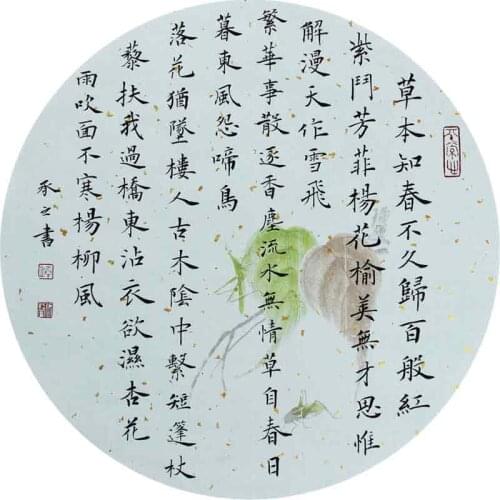 草本知春不久歸百般紅
紫鬥芳菲楊花榆莢無才思惟
解漫天作雪飛
繁華事散逐香塵流水無情草自春日
暮東風怨啼鳥
落花猶墜樓人古木陰中繫短篷杖
藜扶我過橋東沾衣欲濕杏花
雨吹面不寒楊柳風
書